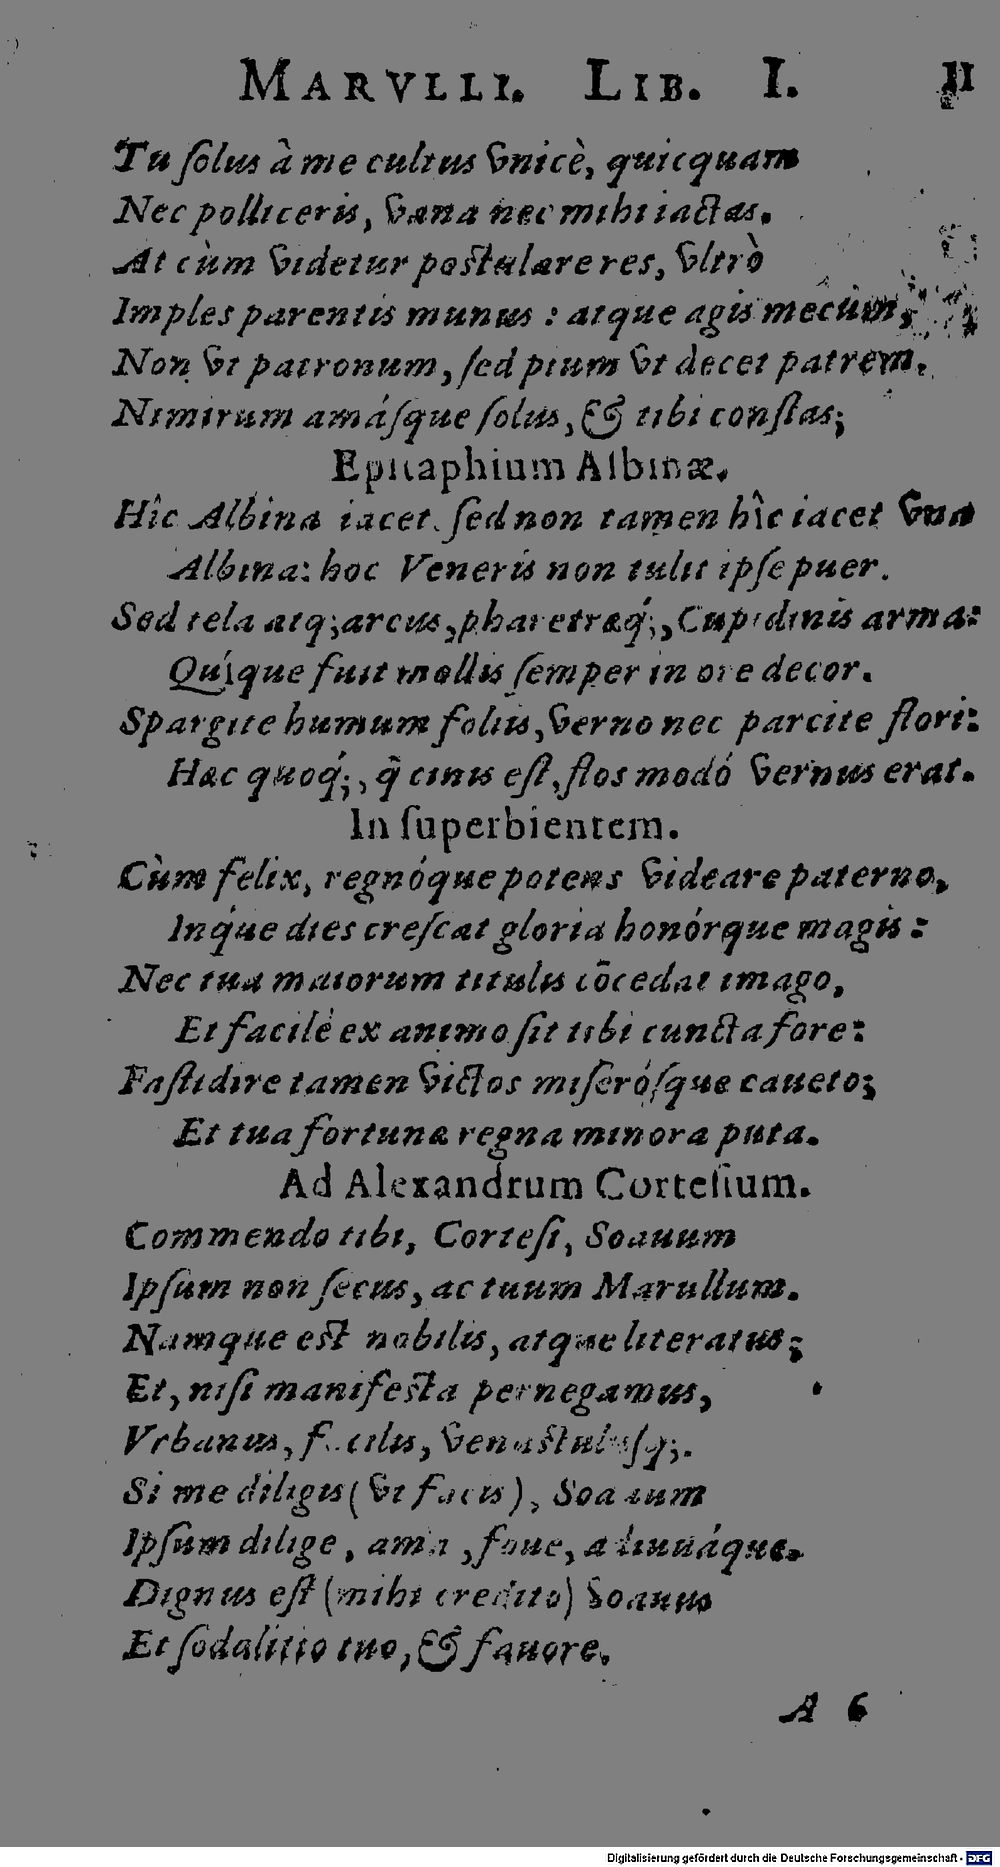 MARVLLI. LIB. I. 11
Tu ſolus à me cultus vnicè, quicquam
Nec polliceris, vana nec mihi iactas.
At cùm videtur postulare res, vltrò
Imples parentis munus : atque agis mecum,
Non vt patronum, ſed pium vt decet patrem.
Nimirum amáſque ſolus, & tibi conſtas;
Epitaphium Albinæ.
Hîc Albina iacet. ſed non tamen hîc iacet vna
Albina: hoc Veneris non tulit ipſe puer.
Sed tela atq; arcus, pharetræq́;, Cupidinis arma:
Quíque fuit mollis ſemper in ore decor.
Spargite humum foliis, verno nec parcite flori:
Hæc quoq́;, q̃ cinis eſt, flos modó vernus erat.
In ſuperbientem.
Cùm felix, regnóque potens videare paterno,
Inq́ue dies creſcat gloria honórque magis:
Nec tua maiorum titulis cōcedat imago,
Et facilè ex animo ſit tibi cuncta fore:
Faſtidire tamen victos miſeróſque caueto;
Et tua fortunæ regna minora puta.
Ad Alexandrum Corteſium.
Commendo tibi, Corteſi, Soauum
Ipſum non ſecus, ac tuum Marullum.
Namque est nobilis, atque literatus;
Et, niſi manifesta pernegamus,
Vrbanus, facilis, venustuluſq;.
Si me diligis (vt facis), Soauum
Ipſum dilige, ama, foue, adiuuáque.
Dignus eſt (mihi credito) Soauus
Et ſodalitio tuo, & fauore.
A 6
Digitalisierung gefördert durch die Deutsche Forschungsgemeinschaft - DFG